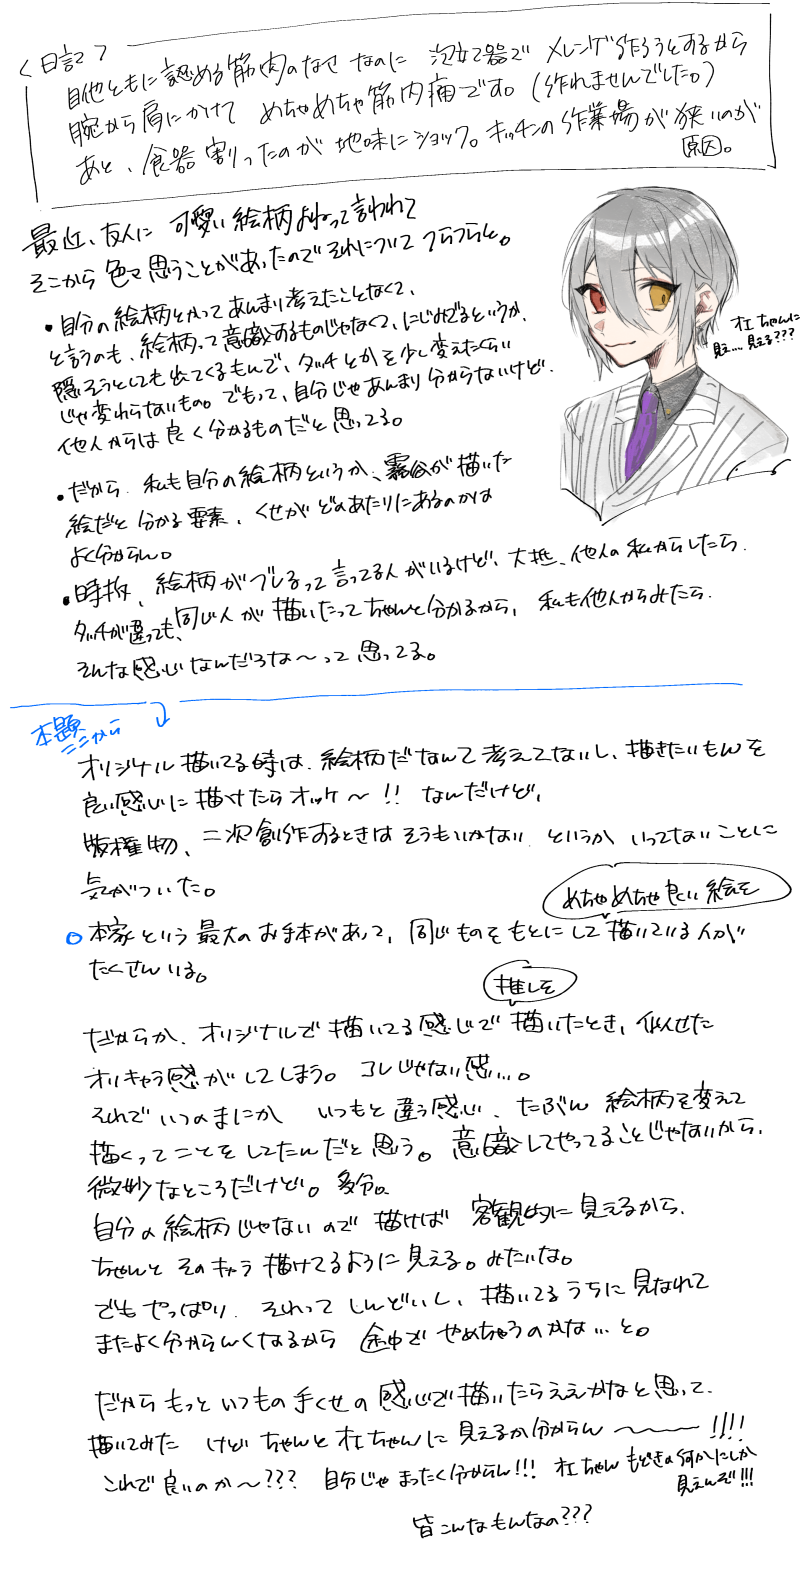 <日記>
自他ともに認める筋肉のなさ なのに 泡立て器で メレンゲ作ろうとするから
腕から肩にかけて めちゃめちゃ筋肉痛です。(作れませんでした。)
あと、食器割ったのが 地味にショック。キッチンの作業場が狭いのが
原因。
最近、友人に 可愛い絵柄よねって言われて
そこから 色々思うことがあったのでそれについて つらつらと。
・自分の絵柄とかってあんまり考えたことなくて、
と言うのも、絵柄って意識するものじゃなくて、にじみでるというか、
隠そうとしても出てくるもんで、タッチとかを少し変えたくらい
じゃ変わらないもの。でもって、自分じゃあんまり分からないけど、
他人からは良く分かるものだと思ってる。
杜ちゃんに
見え....見える???
・だから、私も自分の絵柄というか、霧谷が描いた
絵だと分かる要素、くせがどのあたりにあるのかは
よく分からん。
・時折、絵柄がブレるって言ってる人がいるけど、大抵、他人の私からしたら、
タッチが違っても、同じ人が描いたってちゃんと分かるから、私も他人からみたら、
そんな感じなんだろな〜って思ってる。
本題
ここから
オリジナル描いてる時は、絵柄だなんて考えてないし、描きたいもんを
良い感じに描けたらオッケ〜!! なんだけど、
版権物、二次創作するときはそうもいかない、というか いってないことに
気がついた。
めちゃめちゃ良い絵を
○本家という最大のお手本があって、同じものをもとにして描いている人が
たくさんいる。
推しを
だからか、オリジナルで描いてる感じで描いたとき、似せた
オリキャラ感がしてしまう。コレじゃない感...。
それでいつのまにか いつもと違う感じ、たぶん 絵柄を変えて
描くってことをしてたんだと思う。意識してやってることじゃないから、
微妙なところだけど。多分。
自分の絵柄じゃないので描けば 客観的に見えるから、
ちゃんと そのキャラ描けてるように見える。みたいな。
でもやっぱり、それって しんどいし、描いてるうちに見なれて
またよく分からんくなるから 途中で やめちゃうのかな...と。
だからもっと いつもの手くせの感じで描いたらええかなと思って、
描いてみた けど ちゃんと杜ちゃんに見えるか分からん〜〜〜!!!!
これで良いのか〜??? 自分じゃまったく分からん!!! 杜ちゃんもどきの何かにしか
見えんぞ!!!
皆こんなもんなの???